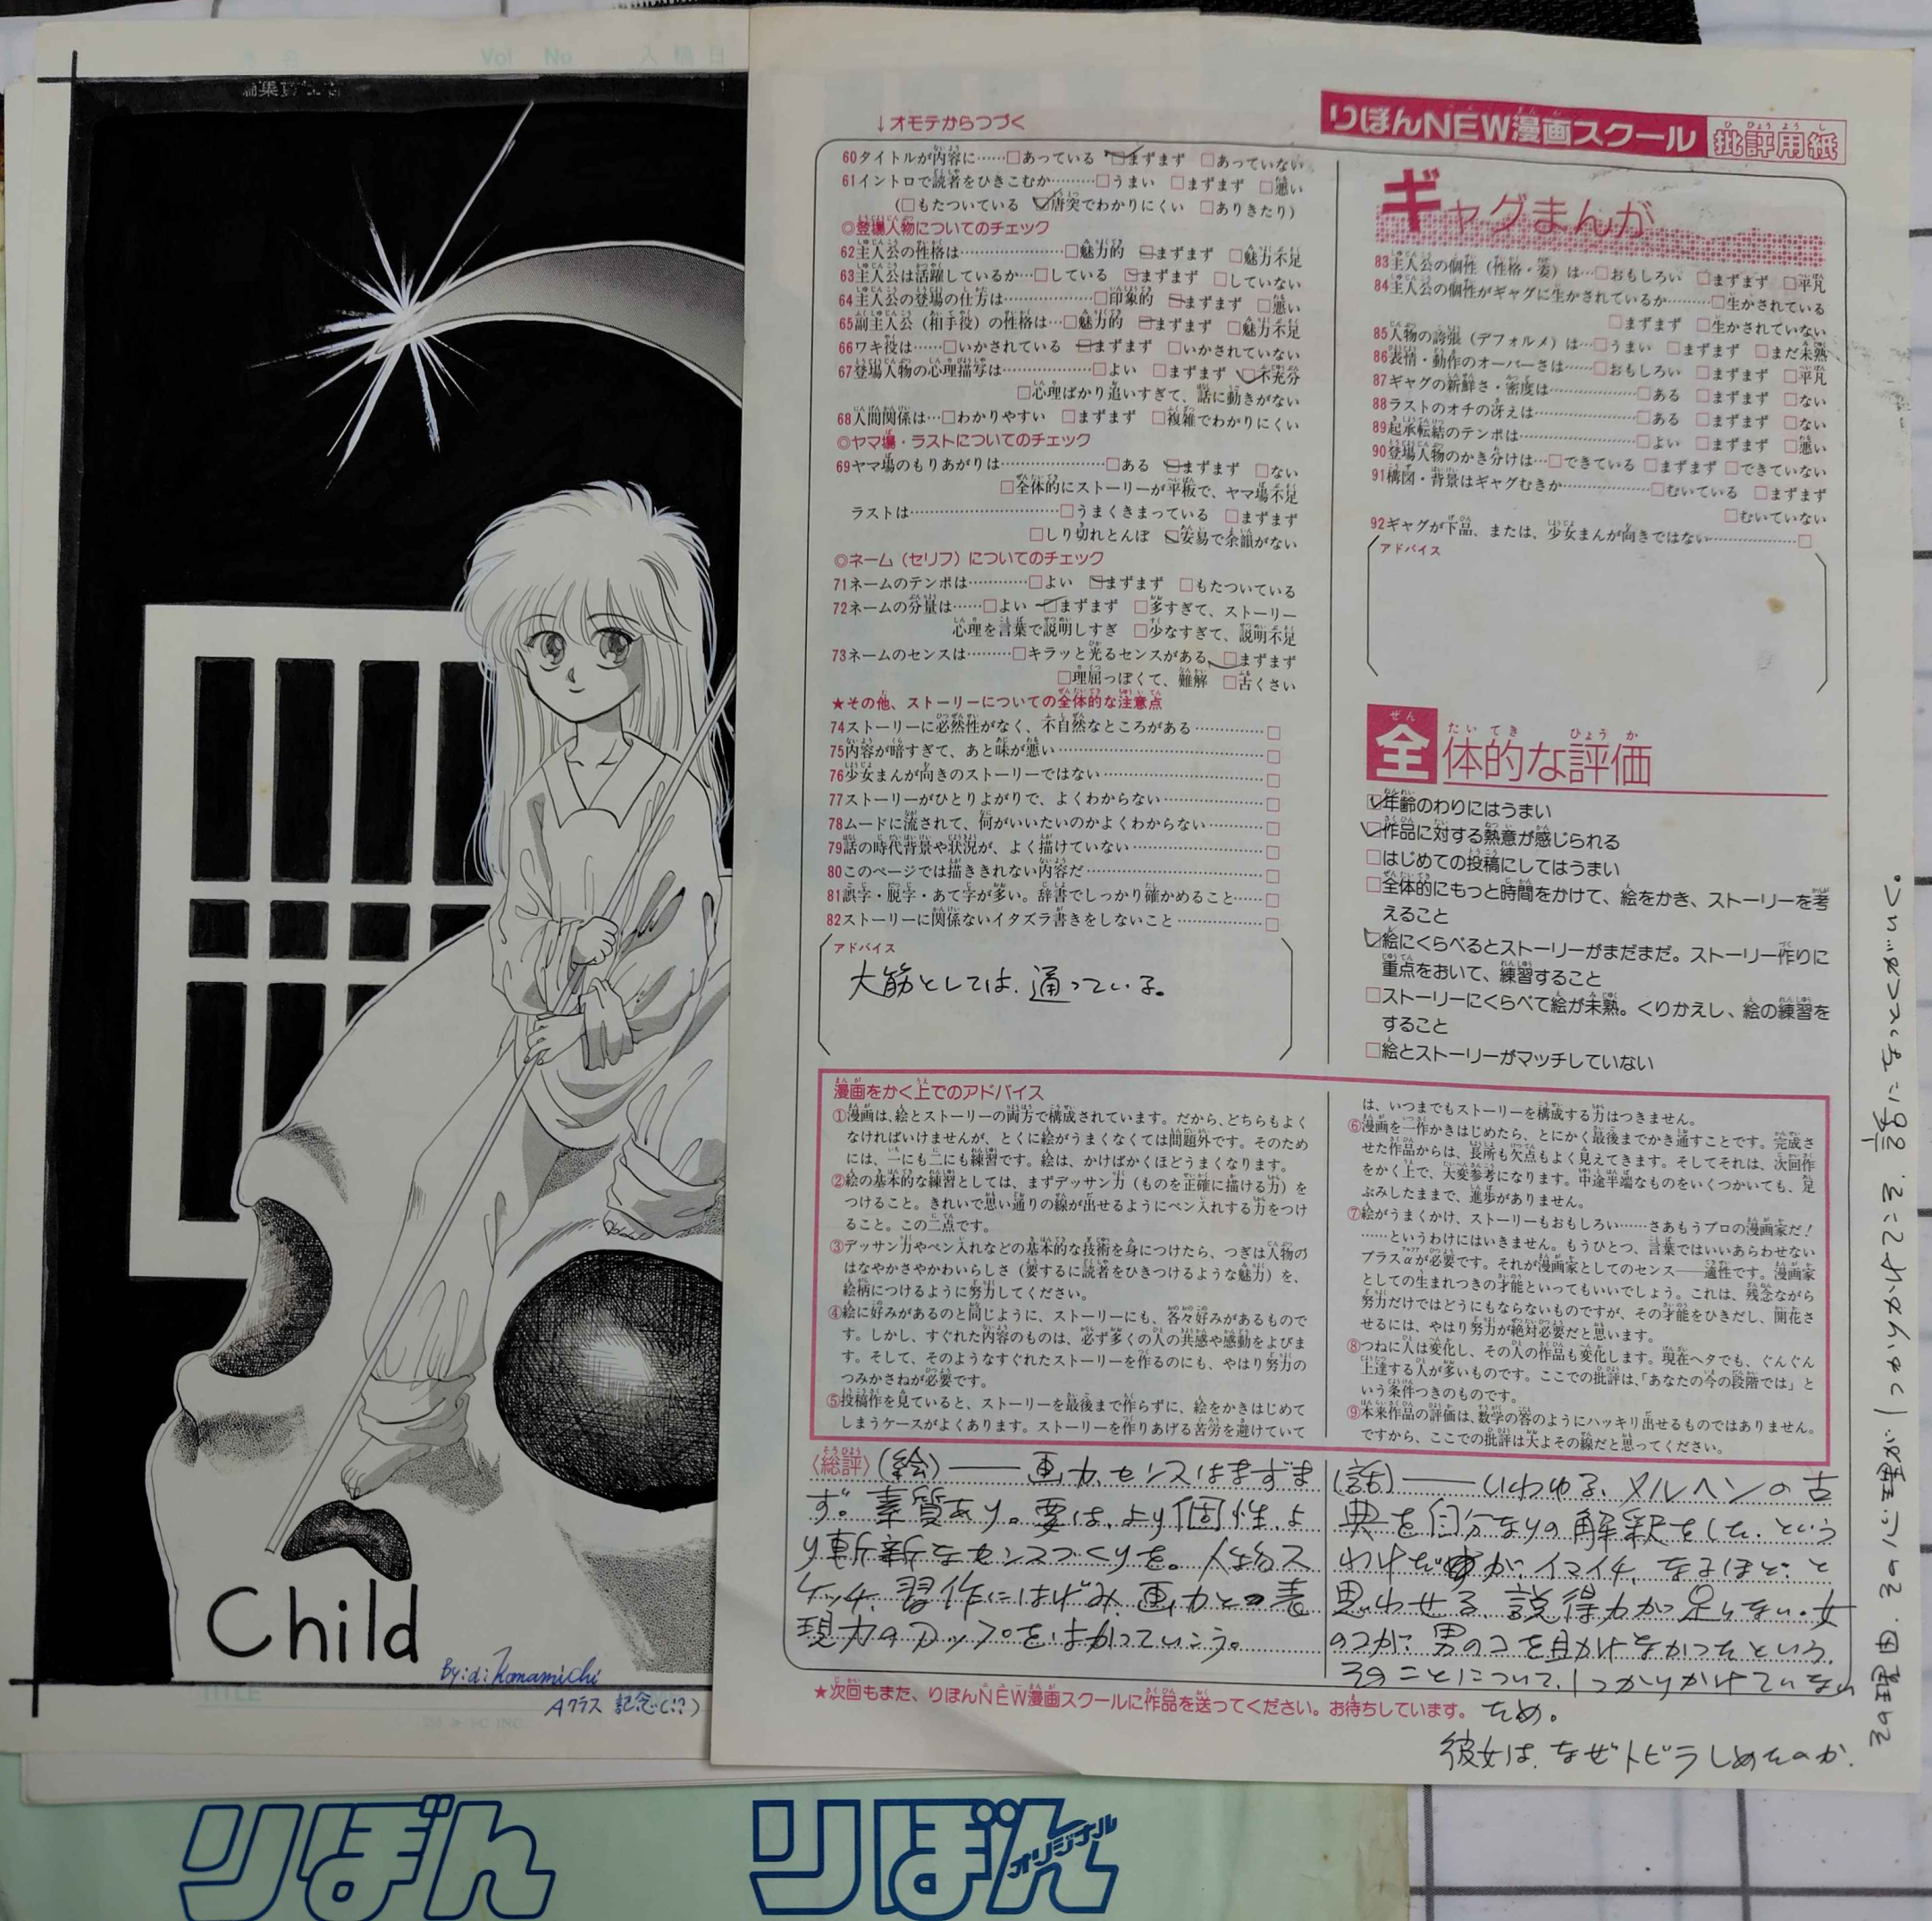 Vol No 入稿日
Child
By:d:Konamichi
Aクラス 記念(!?)
TITLE
りぼん
りぼん
オリジナル
↓オモテからつづく
りぼんNEW漫画スクール 批評用紙
60タイトルが内容に……□あっている □まずまず □あっていない
61イントロで読者をひきこむか………□うまい □まずまず □悪い
(□もたついている □唐突でわかりにくい □ありきたり)
◎登場人物についてのチェック
62主人公の性格は…………………□魅力的 □まずまず □魅力不足
63主人公は活躍しているか…□している □まずまず □していない
64主人公の登場の仕方は……………□印象的 □まずまず □悪い
65副主人公(相手役)の性格は…□魅力的 □まずまず □魅力不足
66ワキ役は……□いかされている □まずまず □いかされていない
67登場人物の心理描写は……………□よい □まずまず □不充分
□心理ばかり追いすぎて、話に動きがない
68人間関係は…□わかりやすい □まずまず □複雑でわかりにくい
◎ヤマ場・ラストについてのチェック
69ヤマ場のもりあがりは…………………□ある □まずまず □ない
□全体的にストーリーが平板で、ヤマ場不足
ラストは…………………………□うまくきまっている □まずまず
□しり切れとんぼ □安易で余韻がない
◎ネーム(セリフ)についてのチェック
71ネームのテンポは…………□よい □まずまず □もたついている
72ネームの分量は……□よい □まずまず □多すぎて、ストーリー
心理を言葉で説明しすぎ □少なすぎて、説明不足
73ネームのセンスは………□キラッと光るセンスがある □まずまず
□理屈っぽくて、難解 □古くさい
★その他、ストーリーについての全体的な注意点
74ストーリーに必然性がなく、不自然なところがある……………□
75内容が暗すぎて、あと味が悪い……………………………………□
76少女まんが向きのストーリーではない……………………………□
77ストーリーがひとりよがりで、よくわからない…………………□
78ムードに流されて、何がいいたいのかよくわからない…………□
79話の時代背景や状況が、よく描けていない………………………□
80このページでは描ききれない内容だ………………………………□
81誤字・脱字・あて字が多い。辞書でしっかり確かめること……□
82ストーリーに関係ないイタズラ書きをしないこと………………□
アドバイス
大筋としては、通っている。
ギャグまんが
83主人公の個性(性格・姿)は…□おもしろい □まずまず □平凡
84主人公の個性がギャグに生かされているか………□生かされている
□まずまず □生かされていない
85人物の誇張(デフォルメ)は…□うまい □まずまず □まだ未熟
86表情・動作のオーバーさは……□おもしろい □まずまず □平凡
87ギャグの新鮮さ・密度は……………□ある □まずまず □ない
88ラストのオチの冴えは………………□ある □まずまず □ない
89起承転結のテンポは…………………□よい □まずまず □悪い
90登場人物のかき分けは…□できている □まずまず □できていない
91構図・背景はギャグむきか……………□むいている □まずまず
□むいていない
92ギャグが下品、または、少女まんが向きではない……………□
アドバイス
全体的な評価
□年齢のわりにはうまい
□作品に対する熱意が感じられる
□はじめての投稿にしてはうまい
□全体的にもっと時間をかけて、絵をかき、ストーリーを考
えること
□絵にくらべるとストーリーがまだまだ。ストーリー作りに
重点をおいて、練習すること
□ストーリーにくらべて絵が未熟。くりかえし、絵の練習を
すること
□絵とストーリーがマッチしていない
漫画をかく上でのアドバイス
①漫画は、絵とストーリーの両方で構成されています。だから、どちらもよく
なければいけませんが、とくに絵がうまくなくては問題外です。そのため
には、一にも二にも練習です。絵は、かけばかくほどうまくなります。
②絵の基本的な練習としては、まずデッサン力(ものを正確に描ける力)を
つけること。きれいで思い通りの線が出せるようにペン入れする力をつけ
ること。この二点です。
③デッサン力やペン入れなどの基本的な技術を身につけたら、つぎは人物の
はなやかさやかわいらしさ(要するに読者をひきつけるような魅力)を、
絵柄につけるように努力してください。
④絵に好みがあるのと同じように、ストーリーにも、各々好みがあるもので
す。しかし、すぐれた内容のものは、必ず多くの人の共感や感動をよびま
す。そして、そのようなすぐれたストーリーを作るのにも、やはり努力の
つみかさねが必要です。
⑤投稿作を見ていると、ストーリーを最後まで作らずに、絵をかきはじめて
しまうケースがよくあります。ストーリーを作りあげる苦労を避けていて
は、いつまでもストーリーを構成する力はつきません。
⑥漫画を一作かきはじめたら、とにかく最後までかき通すことです。完成さ
せた作品からは、長所も欠点もよく見えてきます。そしてそれは、次回作
をかく上で、大変参考になります。中途半端なものをいくつかいても、足
ぶみしたままで、進歩がありません。
⑦絵がうまくかけ、ストーリーもおもしろい……さあもうプロの漫画家だ!
……というわけにはいきません。もうひとつ、言葉ではいいあらわせない
プラスαが必要です。それが漫画家としてのセンス——適性です。漫画家
としての生まれつきの才能といってもいいでしょう。これは、残念ながら
努力だけではどうにもならないものですが、その才能をひきだし、開花さ
せるには、やはり努力が絶対必要だと思います。
⑧つねに人は変化し、その人の作品も変化します。現在ヘタでも、ぐんぐん
上達する人が多いものです。ここでの批評は、「あなたの今の段階では」と
いう条件つきのものです。
⑨本来作品の評価は、数学の答のようにハッキリ出せるものではありません。
ですから、ここでの批評は大よその線だと思ってください。
〈総評〉(絵)——画力、センスはまずま
ず。素質あり。要は、より個性、よ
り斬新なセンスづくりを。人物ス
ケッチ、習作にはげみ、画力との表
現力のアップをはかっていこう。
(話)——いわゆる、メルヘンの古
典を自分なりの解釈をした、という
わけだが、イマイチ、なるほど、と
思わせる、説得力が足りない。女
のコが、男のコを助けなかったという、
そのことについて、しっかりかけていない
ため。
彼女は、なぜトビラしめたのか、
その理由、その(心理)
★次回もまた、りぼんNEW漫画スクールに作品を送ってください。お待ちしています。